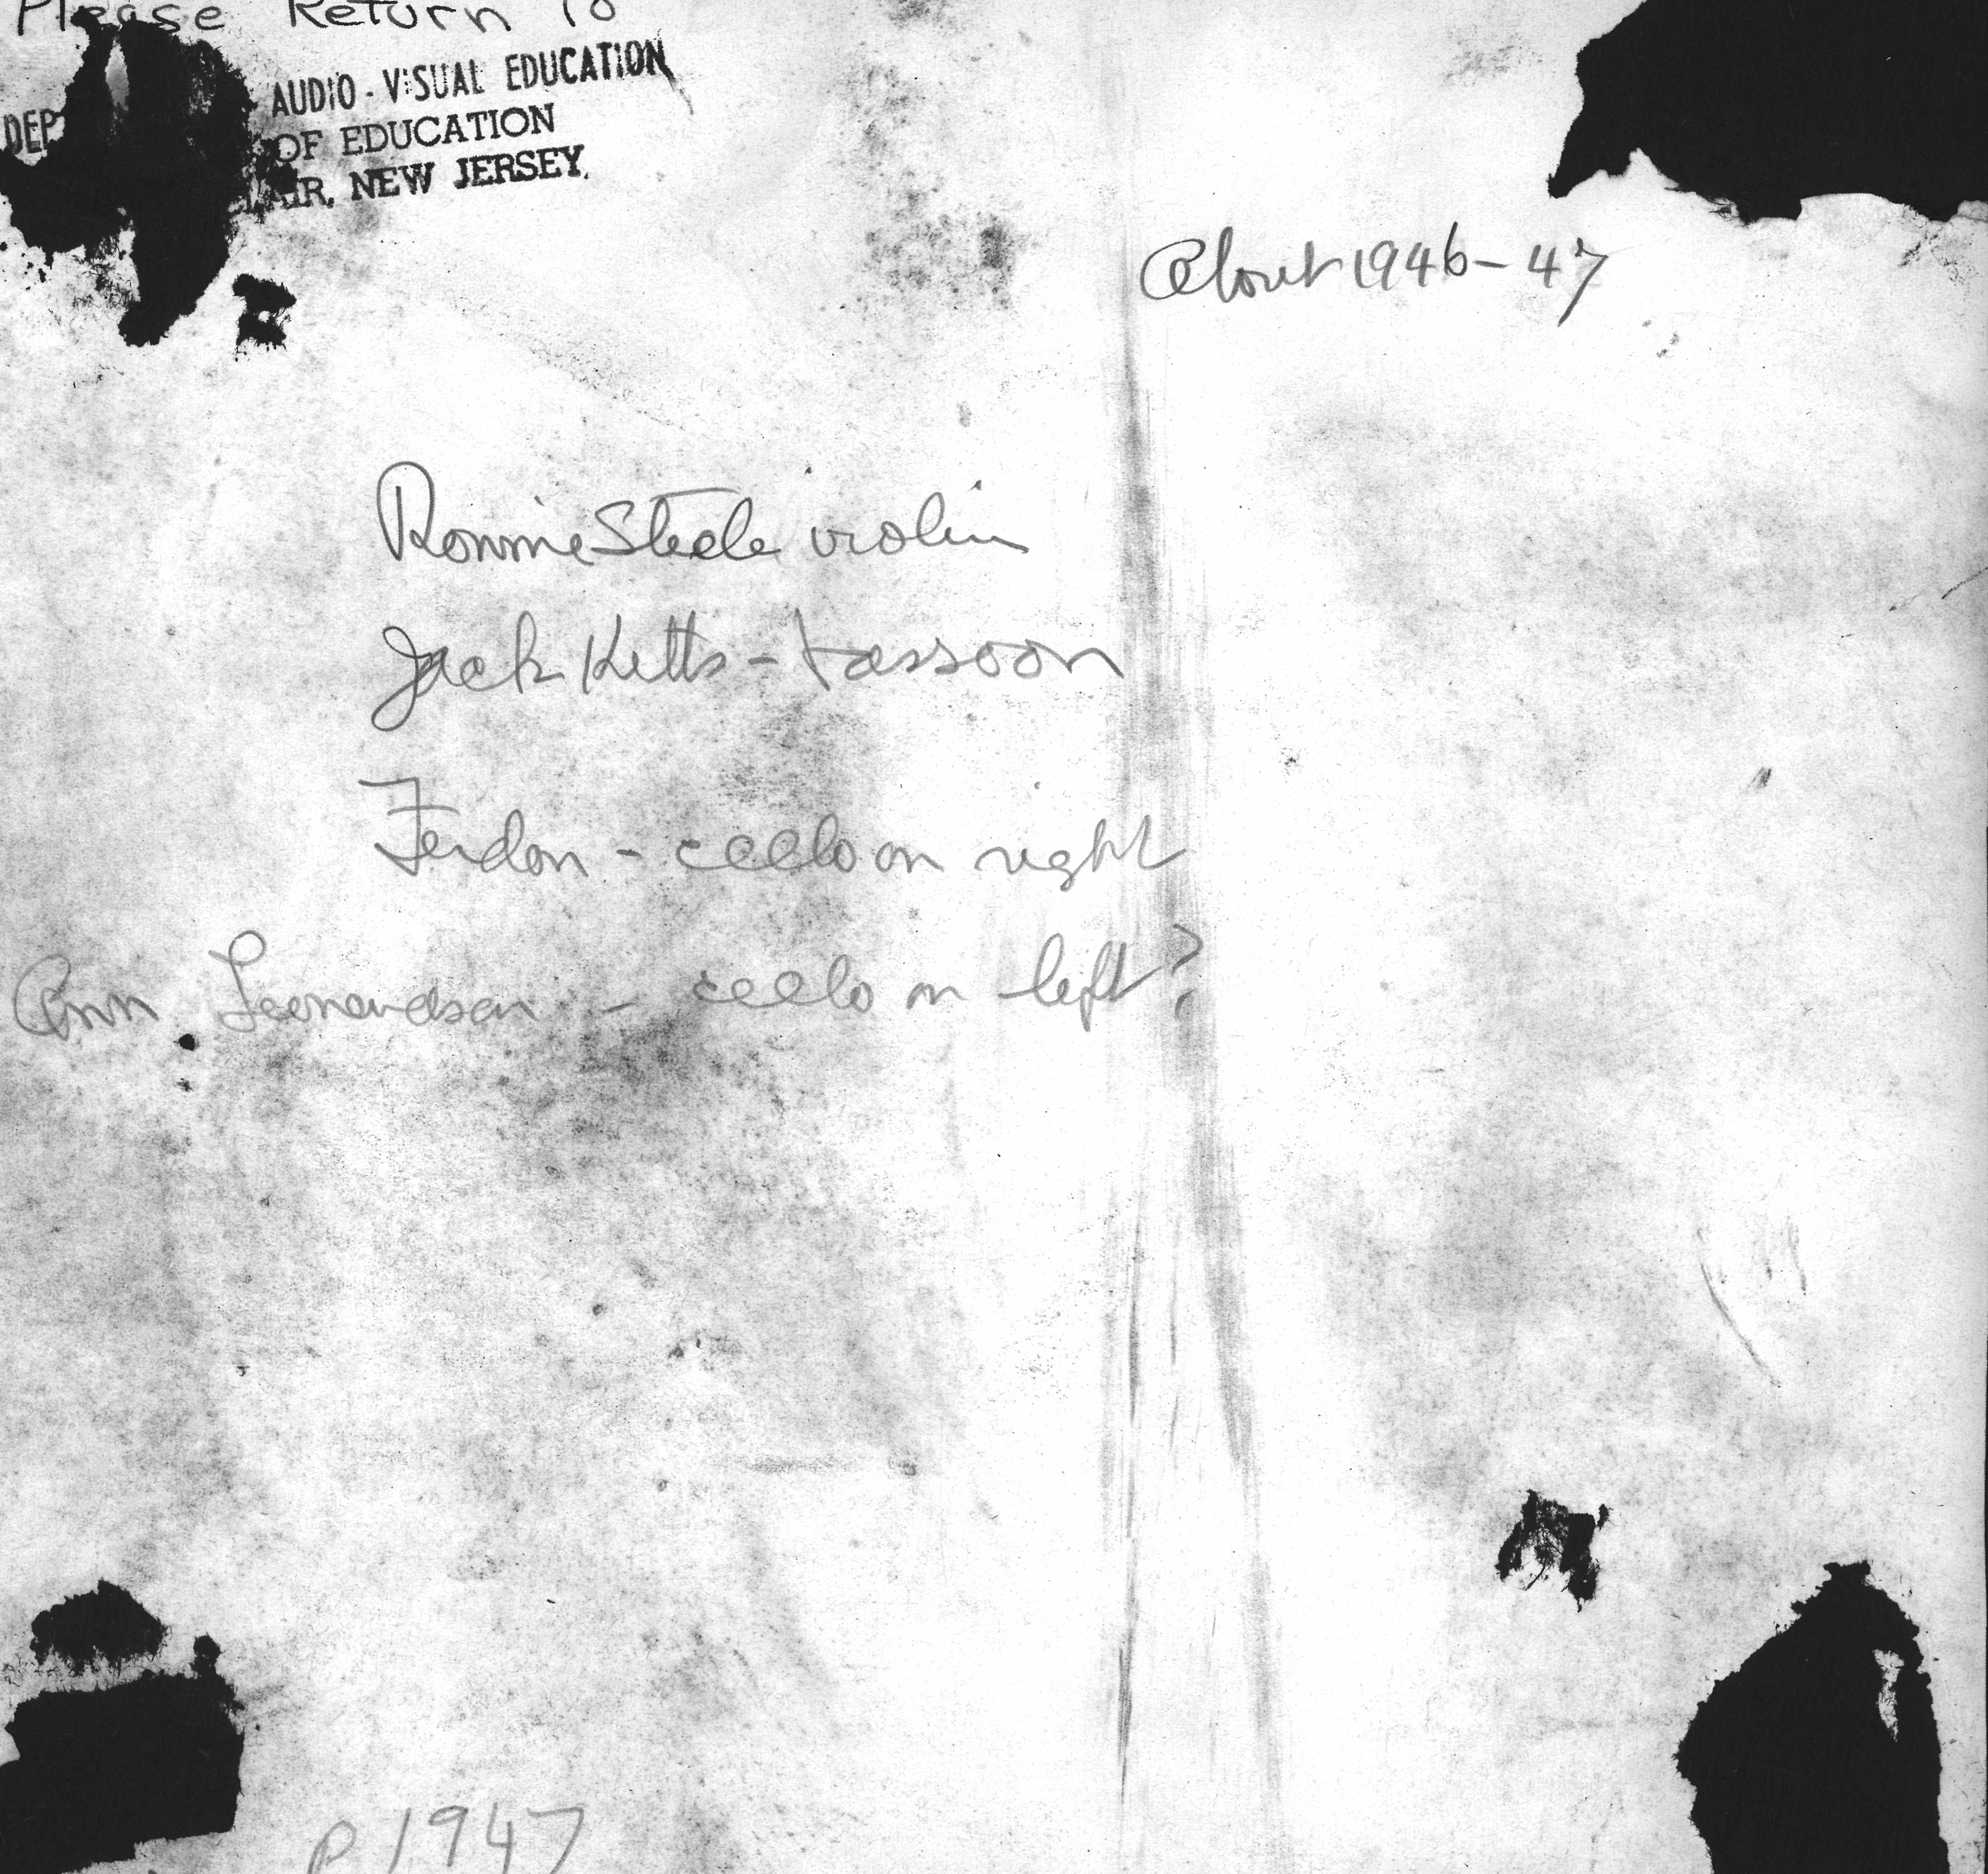 Please Return To
DEP AUDIO-VISUAL EDUCATION
OF EDUCATION
CLAIR, NEW JERSEY.
About 1946-47
Ronnie Steele violin
Jack Kitts - bassoon
Ferdon - cello on right
Ann Leonardson - cello on left?
1947